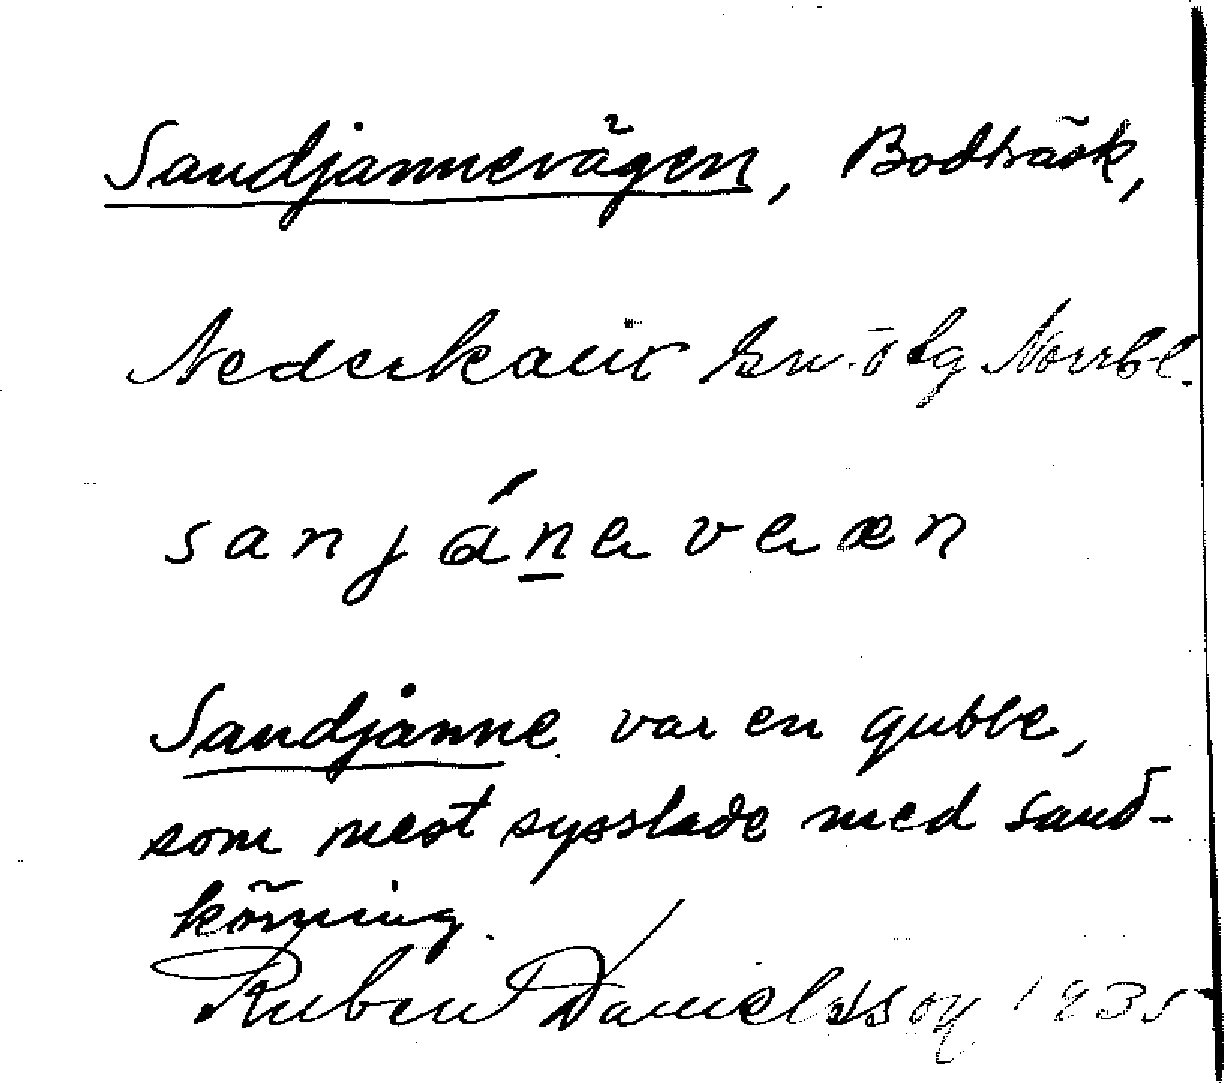 Sandjannevägen, Bodträsk,
Nederkalix sn. o tg Norrb l.
sanjánevææn
Sandjanne var en gubbe,
som mest sysslade med sand-
körning.
Ruben Danielsson 1935